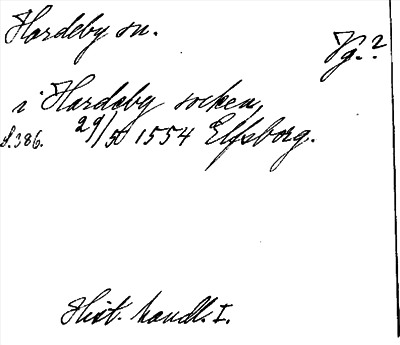 Hardeby sn.
Vg.?
i Hardeby socken,
S. 386. 29/5 1554 Elfsborg.
Hist. handl. I.